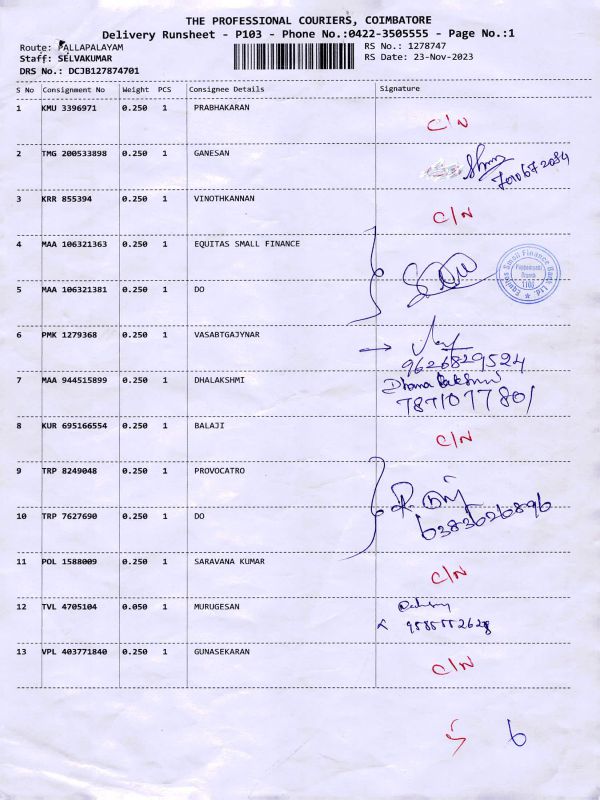 THE PROFESSIONAL COURIERS, COIMBATORE
Delivery Runsheet - P103 - Phone No.:0422-3505555 - Page No.:1
Route: PALLAPALAYAM
Staff: SELVAKUMAR
DRS No.: DCJB127874701
RS No.: 1278747
RS Date: 23-Nov-2023
S No Consignment No Weight PCS Consignee Details Signature
1 KMU 3396971 0.250 1 PRABHAKARAN C/N
2 TMG 200533898 0.250 1 GANESAN
3 KRR 855394 0.250 1 VINOTHKANNAN C/N
4 MAA 106321363 0.250 1 EQUITAS SMALL FINANCE
Equitas Small Finance Bank Ltd
5 MAA 106321381 0.250 1 DO
6 PMK 1279368 0.250 1 VASABTGAJYNAR
9626829524
7 MAA 944515899 0.250 1 DHALAKSHMI
7871077801
8 KUR 695166554 0.250 1 BALAJI C/N
9 TRP 8249048 0.250 1 PROVOCATRO
10 TRP 7627690 0.250 1 DO
6383626896
11 POL 1588009 0.250 1 SARAVANA KUMAR C/N
12 TVL 4705104 0.050 1 MURUGESAN
13 VPL 403771840 0.250 1 GUNASEKARAN C/N